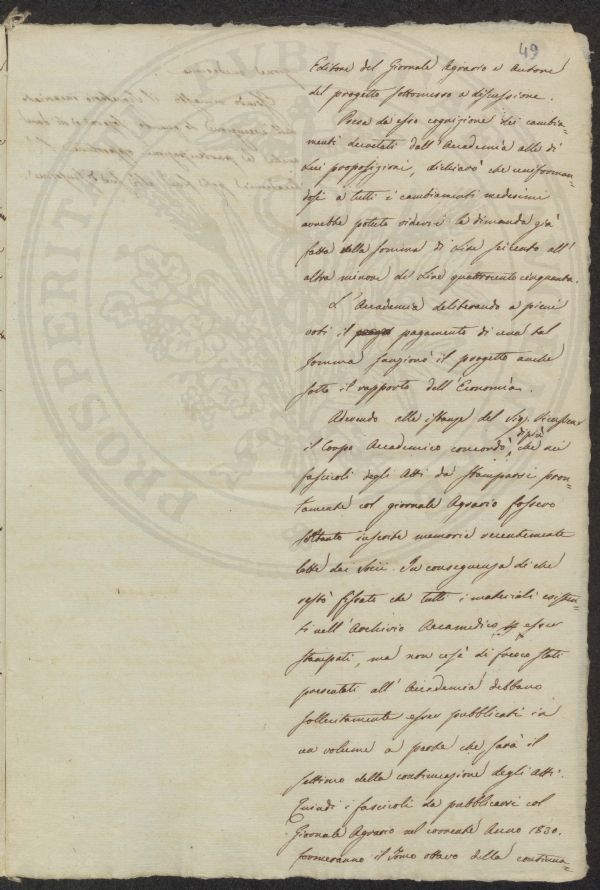 49
Editore del Giornale Agrario e Autore
del progetto sottomesso a discussione.
Presa da esso cognizione dei cambia=
menti decretati dall'Accademia alle di
Lui proposizioni, dichiarò che uniforman=
dosi a tutti i cambiamenti medesimi
avrebbe potuto ridursi la dimanda già
fatta della somma di Lire seicento all'
altra minore di Lire quattrocento cinquanta.
L'Accademia deliberando a pieni
voti il pagamento di una tal
somma sanzionò il progetto anche
sotto il rapporto dell'Economia.
Aderendo alle istanze del Sig. Vieusseux
il Corpo Accademico concordò di più che nei
fascicoli degli Atti da stamparsi pron=
tamente col giornale Agrario fossero
soltanto inserite memorie recentemente
lette dai Socii. In conseguenza di che
restò fissato che tutti i materiali esisten=
ti nell'Archivio Accademico esser
stampati, ma non così di fresco stati
presentati all'Accademia debbano
sollecitamente esser pubblicati in
un volume a parte che sarà il
settimo della continuazione degli Atti.
Quindi i fascicoli da pubblicarsi col
Giornale Agrario nel corrente Anno 1830.
formeranno il Tomo ottavo della continua=
PROSPERITÀ PUBBLICA